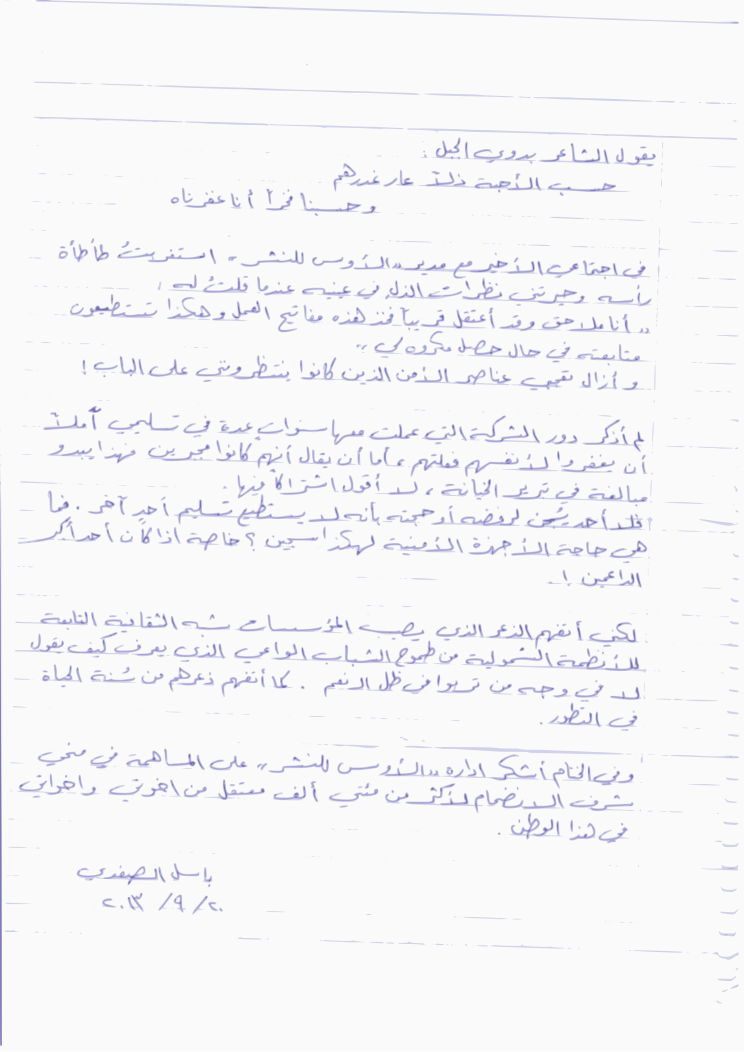 يقول الشاعر بدوي الجبل :
حسب الأحبة ذلاً عار غدرهم
وحسبنا فخراً أنا غفرناه
في اجتماعي الأخير مع مدير "الأوس للنشر" استغربتُ طأطأة
رأسه وحيرتني نظرات الذل في عينيه عندما قلتُ له :
"أنا ملاحق وقد أعتقل قريباً فخذ هذه مفاتيح العمل وهكذا تستطيعون
متابعته في حال حصل مكروه لي"
و أزال تعجبي عناصر الأمن الذين كانوا ينتظرونني على الباب !
لم أذكر دور الشركة التي عملت معها سنواتٍ عدة في تسليمي أملاً
أن يغفروا لأنفسهم فعلتهم ، أما أن يقال أنهم كانوا مجبرين فهذا يبدو
مبالغة في تبرير الخيانة ، لا أقول اشتراكاً فيها .
فلا أحد يُسجن لرفضه أو حجته بأنه لا يستطيع تسليم أحدٍ آخر . فما
هي حاجة الأجهزة الأمنية لهكذا سجين ؟ خاصة اذا كان أحد أكبر
الداعمين !.
لكني أتفهم الذعر الذي يصيب المؤسسات شبه الثقافية التابعة
للأنظمة الشمولية من طموح الشباب الواعي الذي يعرف كيف يقول
لا في وجه من تربوا في ظل النعم . كما أتفهم ذعرهم من سُنة الحياة
في التطور .
وفي الختام أشكر ادارة "الأوس للنشر" على المساهمة في منحي
شرف الانضمام لأكثر من مئتي ألف معتقل من اخوتي واخواتي
في هذا الوطن .
باسل الصفدي
٢٠/ ٩/ ٢٠١٣